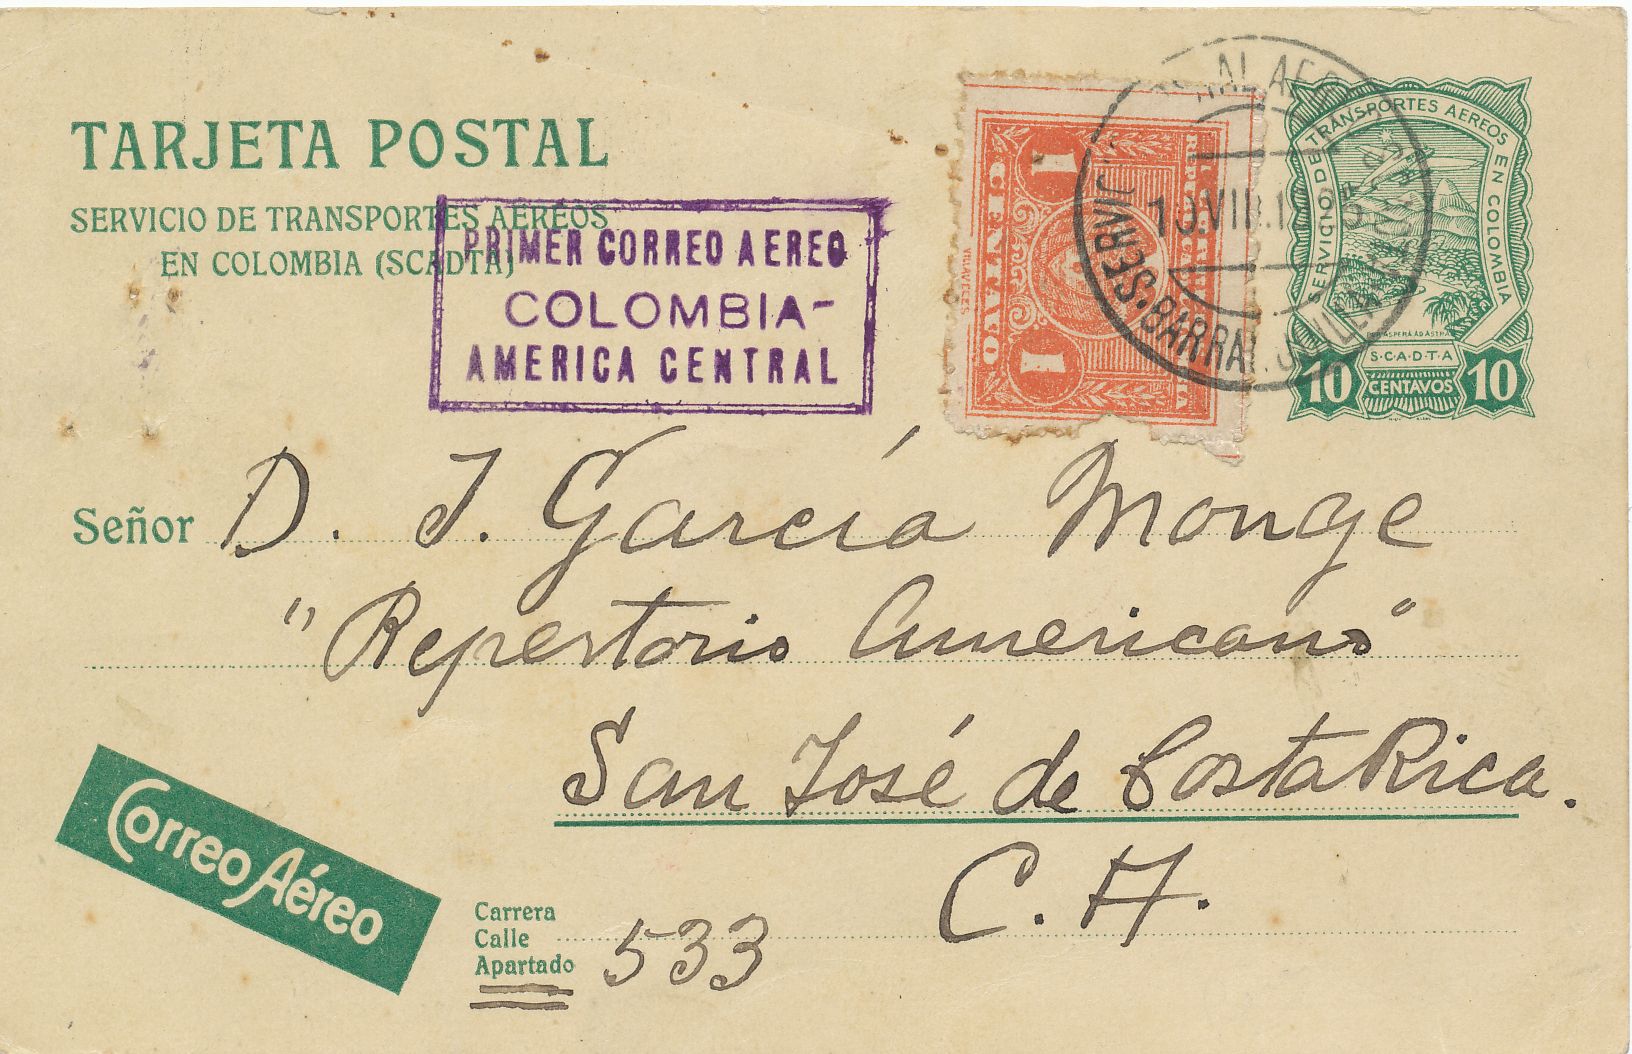 TARJETA POSTAL
SERVICIO DE TRANSPORTES AEREOS
EN COLOMBIA (SCADTA)
PRIMER CORREO AEREO
COLOMBIA-
AMERICA CENTRAL
1 1
CENTAVO
VILLAVECES
BARRAN
10.VIII.1
SERVICIO DE TRANSPORTES AEREOS EN COLOMBIA
PER ASPERA AD ASTRA
S·C·A·D·T·A
10 CENTAVOS 10
Señor D. J. García Monge
"Repertorio Americano"
San José de Costa Rica.
C. A.
Correo Aéreo
Carrera
Calle
Apartado 533